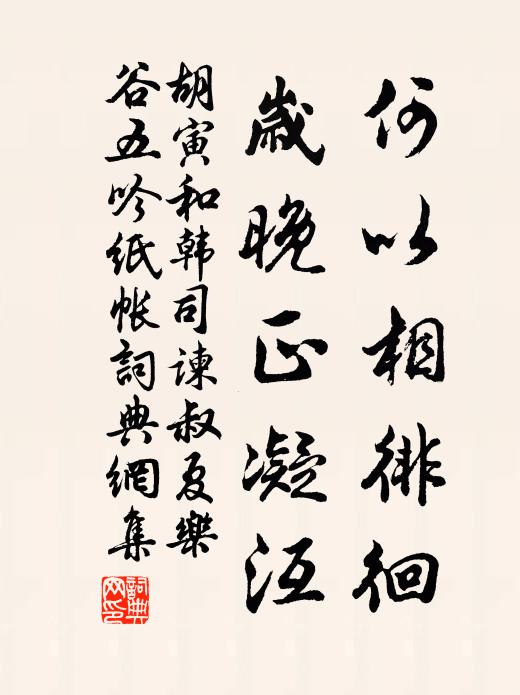 何以相徘徊
歲晚正凝沍
胡寅和韩司諫叔夏樂
谷五吟纸帐詞典網集
詞典網印